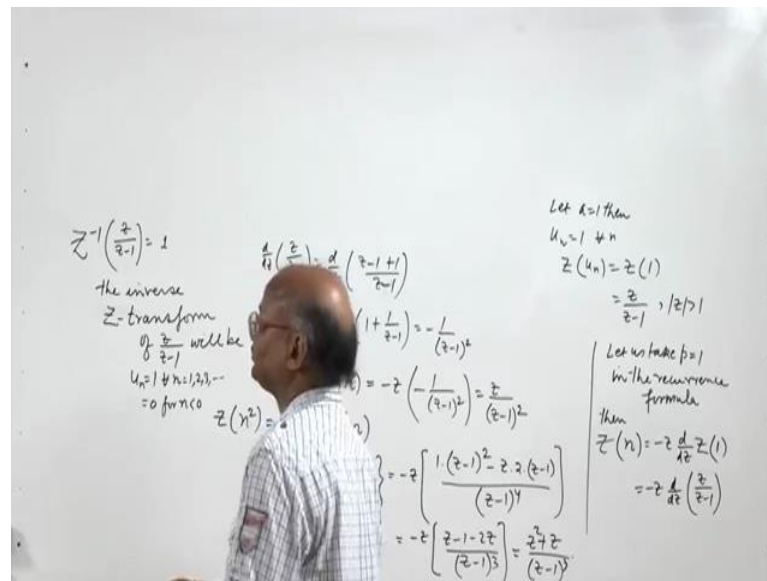 Z⁻¹(z/(z-1)) = 1
the inverse
Z-transform
of z/(z-1) will be
uₙ=1 ∀ n=1,2,3,---
=0 for n<0
d/dz (z/ = d/ (z-1+1)/(z-1))
(1 + 1/(z-1)) = -1/(z-1)²
= -z(-1/(z-1)²) = z/(z-1)²
Z(n²)=
} = -z[(1·(z-1)² - z·2·(z-1))/(z-1)⁴]
= -z[(z-1-2z)/(z-1)³] = (z²+z)/(z-1)³.
Let a=1 then
uₙ=1 ∀ n
Z(uₙ) = Z(1)
= z/(z-1), |z|>1
Let us take p=1
in the recurrence
formula
then
Z(n) = -z d/dz Z(1)
= -z d/dz (z/(z-1))